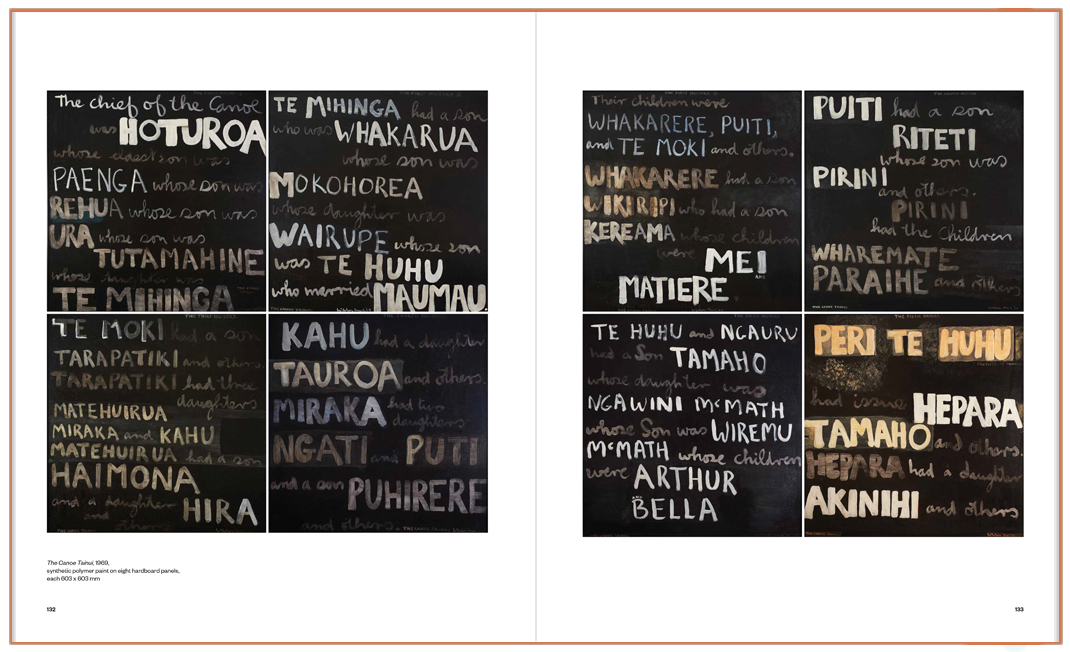 The chief of the Canoe
was HOTUROA
whose eldest son was
PAENGA whose son was
REHUA whose son was
URA whose son was
TUTAMAHINE
whose daughter was
TE MIHINGA
TE MIHINGA had a son
who was WHAKARUA
whose son was
MOKOHOREA
whose daughter was
WAIRUPE whose son
was TE HUHU
who married MAUMAU.
TE MOKI had a son
TARAPATIKI and others.
TARAPATIKI had three
daughters
MATEHUIRUA
MIRAKA and KAHU
MATEHUIRUA had a son
HAIMONA
and a daughter HIRA
and others
KAHU had a daughter
TAUROA and others.
MIRAKA had two
daughters
NGATI and PUTI
and a son
PUHIRERE
and others.
The Canoe Tainui, 1969,
synthetic polymer paint on eight hardboard panels,
each 603 x 603 mm
132
Their children were
WHAKARERE, PUITI,
and TE MOKI and others.
WHAKARERE had a son
WIKIRIPI who had a son
KEREAMA whose children
were MEI
AND
MATIERE.
PUITI had a son
RITETI
whose son was
PIRINI
and others.
PIRINI
had the children
WHAREMATE
PARAIHE and others
TE HUHU and NGAURU
had a Son TAMAHO
whose daughter was
NGAWINI McMATH
whose Son was WIREMU
McMATH whose children
were ARTHUR
AND
BELLA
PERI TE HUHU
had issue HEPARA
TAMAHO and others.
HEPARA had a daughter
AKINIHI and others
133